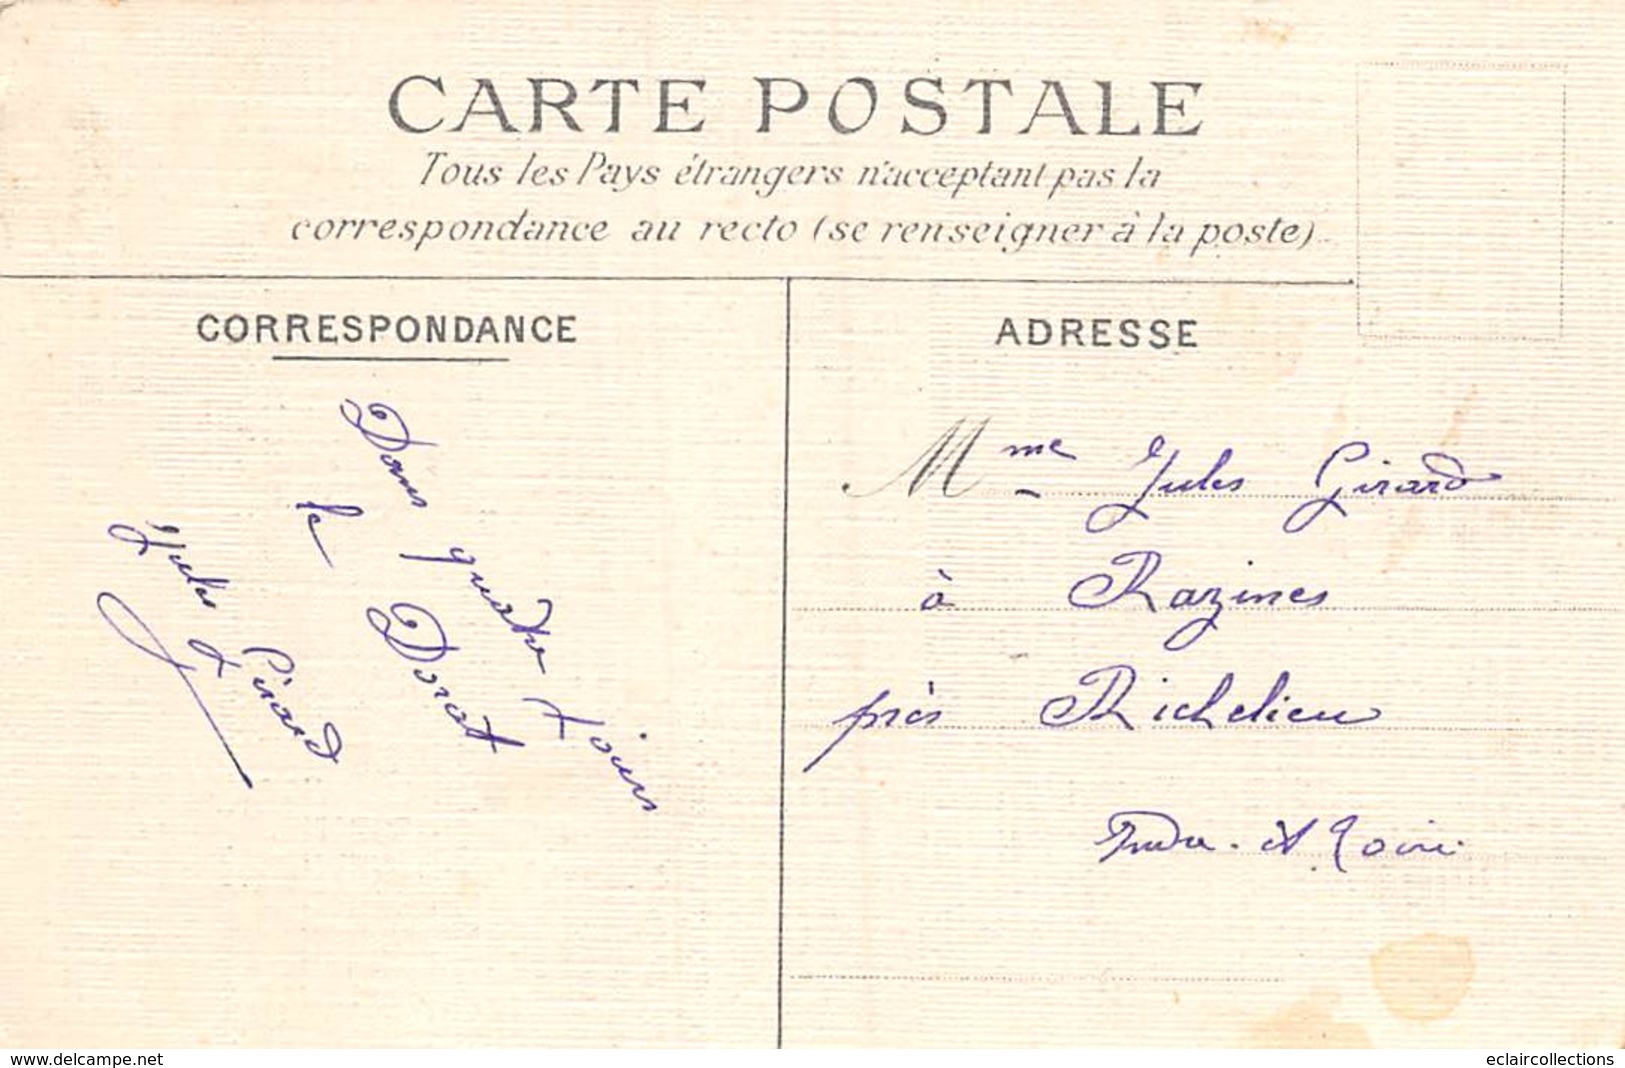 CARTE POSTALE
Tous les Pays étrangers n'acceptant pas la
correspondance au recto (se renseigner à la poste)
CORRESPONDANCE
Dans quatre jours
le Dorat
Jules Girard
ADRESSE
Mme Jules Girard
à Razines
près Richelieu
Indre-et Loire
www.delcampe.net
eclaircollections